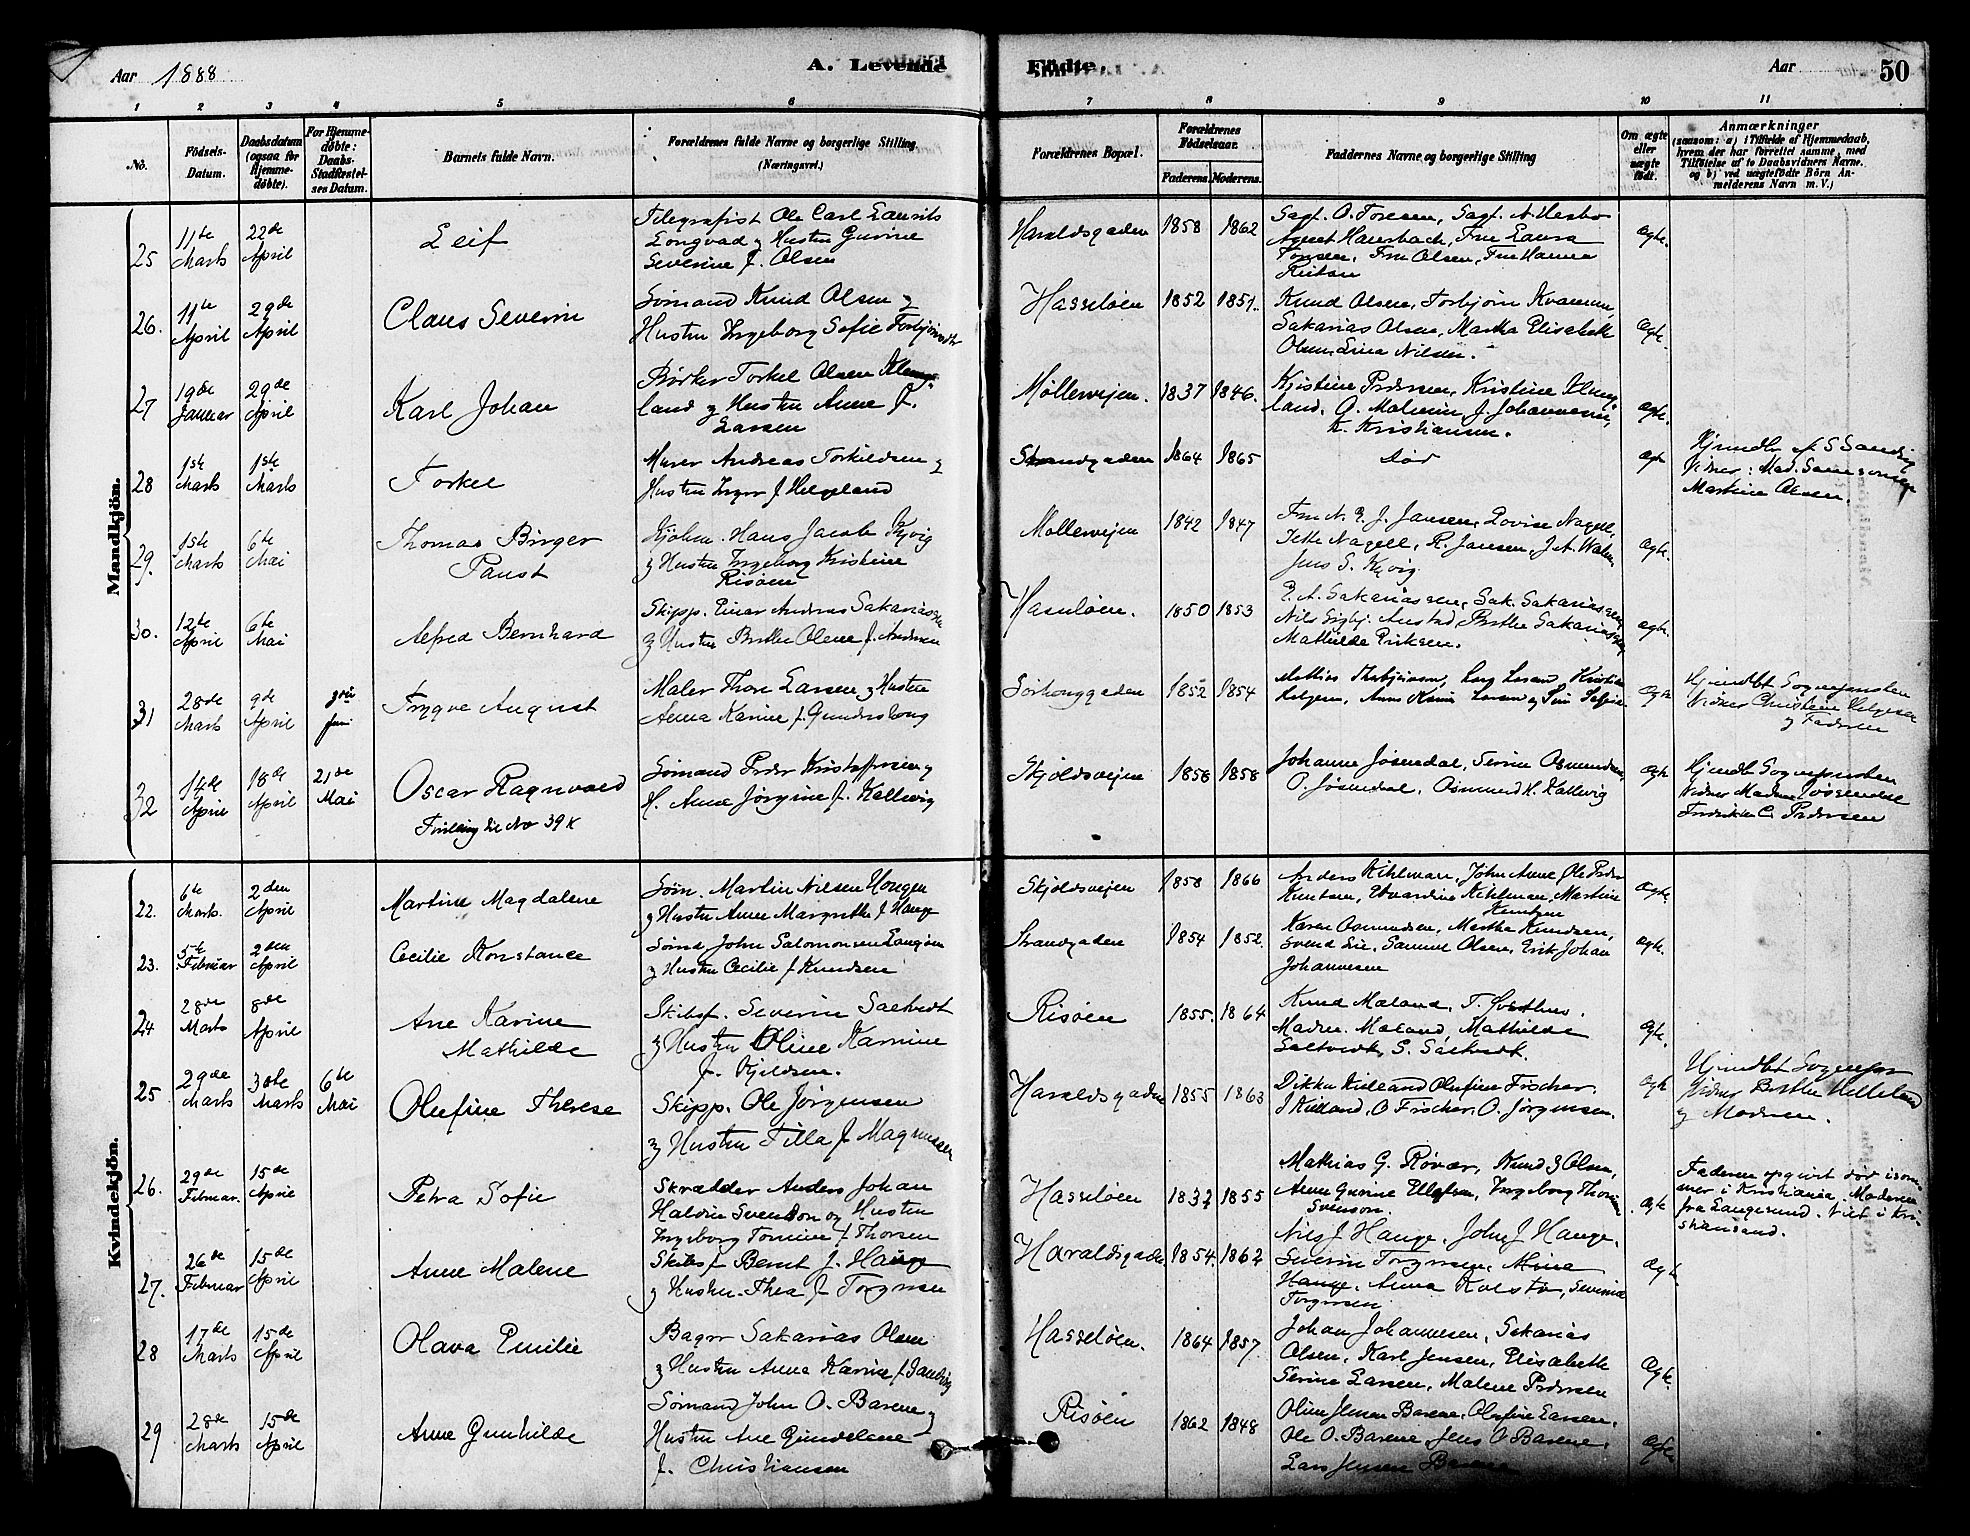 Aar 1888
A. Levende
Födte.
Aar
50
1 2 3 4 5 6 7 8 9 10 11
No.
Födsels-
Datum.
Daabsdatum
(ogsaa for
Hjemme-
döbte).
For Hjemme-
döbte:
Daabs-
Stadfæstel-
ses Datum.
Barnets fulde Navn.
Forældrenes fulde Navne og borgerlige Stilling.
(Næringsvei.)
Forældrenes Bopæl.
Forældrenes
Födselsaar.
Faderens. Moderens.
Faddernes Navne og borgerlige Stilling
Om ægte
eller
uægte
födt.
Anmærkninger
(saasom: a) i Tilfælde af Hjemmedaab,
hvem der har forrettet samme, med
Tilföielse af to Daabsvidners Navne.
og b) ved uægtefödte Börn An-
melderens Navn m. V.)
Mandkjön.
25
11te
Marts
22de
April
Leif
Telegrafist Ole Carl Laurits
Longvad og Hustru Gurine
Severine f. Olsen
Haraldsgaden
1858 1862
Fru Laura
Fru Olsen, Fru Hanna
Ægte.
26.
11te
April
29de
April
Claus Severin
Sømand Knud Olsen og
Hustru Ingeborg Sofie
Hasseløen
1852 1851.
Knud Olsen, Torbjørn
Sakarias Olsen, Martha Elisabeth
Olsen, Lina Nilsen.
Ægte.
27
19de
Januar
29de
April
Karl Johan
Torkel Olsen
land og Hustru Anne f.
Larsen
Møllervejen.
1837 1846.
Kristine Pedersen, Kristine
land, J. Johannesen,
K. Kristiansen.
Ægte.
28
1ste
Marts
1ste
Marts
Torkel
Murer Andreas Torkildsen og
Hustru Inger f. Helgeland
Strandgaden
1864 1865
død
Ægte
Vidner: Mad.
Martine Olsen.
29.
1ste
Marts
6te
Mai
Thomas Birger
Paust
Kjøbm. Hans Jacob Kyvig
og Hustru Ingeborg Kristine
Risøen
Møllervejen
1842 1847
Jansen, Lovise Nagell,
Nagell, R. Jansen,
Jens S. Kyvig
Ægte.
30.
12te
April
6te
Mai
Alfred Bernhard
Skipp. Einar Andreas Sakariassen
og Hustru Berthe Olene f. Andersen
Hasseløen.
1850 1853
Sakariassen, Sak. Sakariassen,
Austad, Berthe Sakariassen
Mathilde Eriksen.
Ægte.
31
28de
Marts
9de
April
Juni
Trygve August
Maler Thore Larsen og Hustru
Anna Karine f. Gundersborg
Sørhouggaden
1852 1854
Kristian
Helgesen, Anna
Ægte
Hjemdøbt Sognepresten
Vidner Christine Helgesen
og Faderen
32
14de
April
18de
April
21de
Mai
Oscar Ragnvald
Tvilling til No 39 K
Sømand Peder Kristoffersen og
H. Anne Jørgine f. Kallevig
Skjoldsvejen
1858 1858
Johanne Jøsendal, Serine Osmundsen,
O. Jøsendal, Osmund H. Kallevig
Ægte
Hjemdøbt Sognepresten
Vidner Madam Jøsendal
Fredrikke C. Pedersen
Kvindekjön.
22.
6te
Marts.
2den
April
Martine Magdalene
Søm. Martin Nilsen Hougen
og Hustru Anne Margrethe f. Hauge
Skjoldsvejen
1858 1866
Anders Kihlman,
Knutsen, Edvardine Kihlman, Martine
Knutsen
Ægte.
23.
5te
Februar
2den
April
Cecilie Konstance
Sømd John Salomonsen
og Hustru Cecilie f Knudsen
Strandgaden
1854 1852.
Karen Osmundsen, Martha Knudsen,
Svend Lie, Samuel Olsen, Erik Johan
Johannesen
Ægte.
24
28de
Marts
8de
April
Ane Karine
Mathilde
Skibsf. Severin Saltvedt
og Hustru Oline Karine
f. Kjeldsen.
Risøen
1855. 1864
Knud Mæland,
Mæland, Mathilde
Saltvedt, S. Saltvedt.
Ægte.
25.
29de
Marts
30te
Marts
6te
Mai
Olufine Therese
Skipp. Ole Jørgensen
og Hustru Tilla f. Magnussen
Haraldsgaden
1855 1863
Kielland Olufine Fischer,
J Kielland, O Fischer, O. Jørgensen.
Ægte
Hjemdøbt
Vidner Berthe Helleland
og Moderen.
26.
29de
Februar.
15de
April
Petra Sofie
Skrædder Anders Johan
Haldin Svendson og Hustru
Ingeborg Tomine f Thorsen
Hasseløen
1832 1855
Mathias G. Røvær, Knud Olsen,
Anne Gurine Ellefsen, Ingeborg Thomine
Svenson.
Ægte
Faderen opgivet død isom-
mer i Kristiania. Moderen
fra Langesund. Viet i Kri-
stiansand.
27.
26de
Februar
15de
April
Anne Malene
Skibsf Bernt J. Hauge
og Hustru Thea f Torgersen
Haraldsgaden
1854. 1862
Nils J Hauge, John J Hauge.
Severin Torgersen, Mina
Hauge, Anna Kolstø, Severine
Torgersen
Ægte.
28
17de
Marts
15de
April
Olava Emilie
Bager Sakarias Olsen
og Hustru Anna Karine f. Sandvig
Hasseløen.
1864 1857.
Johan Johannesen, Sakarias
Olsen, Karl Jensen, Elisabeth
Serine Larsen, Malene Pedersen
Ægte.
29
28de
Marts
15de
April
Anne Gunhilde
Sømand John O. Barene og
Hustru Ane Gundelene
f. Christiansen
Risøen
1862 1848
Oline Jensen Barene, Olufine Larsen,
Ole O. Barene, Jens O Barene,
Lars Jensen Barene
Ægte.